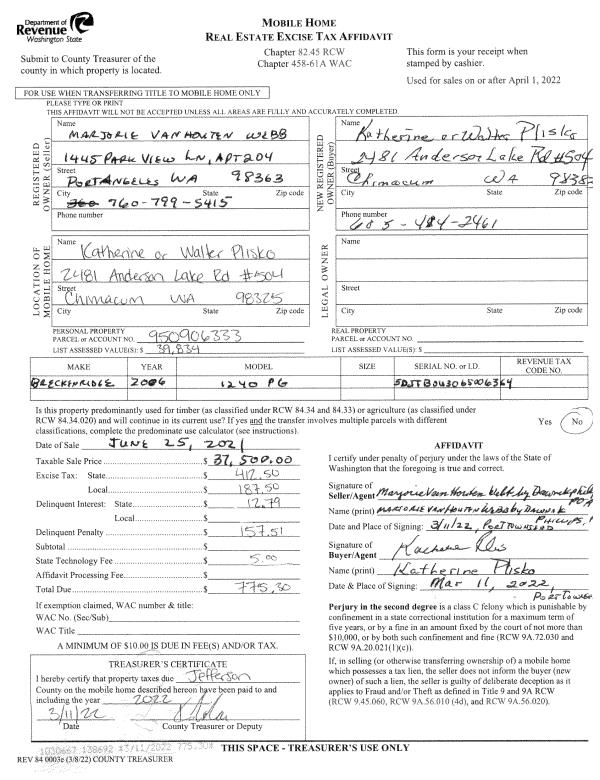 Department of
Revenue
Washington State
MOBILE HOME
REAL ESTATE EXCISE TAX AFFIDAVIT
Submit to County Treasurer of the
county in which property is located.
Chapter 82.45 RCW
Chapter 458-61A WAC
This form is your receipt when
stamped by cashier.
Used for sales on or after April 1, 2022
FOR USE WHEN TRANSFERRING TITLE TO MOBILE HOME ONLY
PLEASE TYPE OR PRINT
THIS AFFIDAVIT WILL NOT BE ACCEPTED UNLESS ALL AREAS ARE FULLY AND ACCURATELY COMPLETED.
REGISTERED
OWNER (Seller)
Name
MARJORIE VAN HOUTEN WEBB
1445 PARK VIEW LN, APT 204
Street
PORT ANGELES WA 98363
City State Zip code
760-799-5415
Phone number
NEW REGISTERED
OWNER (Buyer)
Name
Katherine or Walter Plisko
2481 Anderson Lake Rd #504
Street
Chimacum WA
City State Zip code
Phone number
LOCATION OF
MOBILE HOME
Name
Katherine or Walter Plisko
2481 Anderson Lake Rd #504
Street
Chimacum WA 98325
City State Zip code
LEGAL OWNER
Name
Street
City State Zip code
PERSONAL PROPERTY
PARCEL or ACCOUNT NO. 950906333
LIST ASSESSED VALUE(S): $ 39,834
REAL PROPERTY
PARCEL or ACCOUNT NO.
LIST ASSESSED VALUE(S): $
MAKE YEAR MODEL SIZE SERIAL NO. or I.D. REVENUE TAX
CODE NO.
BRECKENRIDGE 2006 1240 PG
Is this property predominantly used for timber (as classified under RCW 84.34 and 84.33) or agriculture (as classified under
RCW 84.34.020) and will continue in its current use? If yes and the transfer involves multiple parcels with different
classifications, complete the predominate use calculator (see instructions). Yes No
Date of Sale JUNE 25, 2021
Taxable Sale Price $ 37,500.00
Excise Tax: State $ 412.50
Local $ 187.50
Delinquent Interest: State $ 12.79
Local $
Delinquent Penalty $ 157.51
Subtotal $
State Technology Fee $ 5.00
Affidavit Processing Fee $
Total Due $ 775.30
If exemption claimed, WAC number & title:
WAC No. (Sec/Sub)
WAC Title
A MINIMUM OF $10.00 IS DUE IN FEE(S) AND/OR TAX.
TREASURER'S CERTIFICATE
I hereby certify that property taxes due Jefferson
County on the mobile home described hereon have been paid to and
including the year 2022
3/11/22
Date County Treasurer or Deputy
AFFIDAVIT
I certify under penalty of perjury under the laws of the State of
Washington that the foregoing is true and correct.
Signature of
Seller/Agent Marjorie Van Houten Webb by
POA
Name (print) MARJORIE VAN HOUTEN WEBB by DAWN K
PHILLIPS
Date and Place of Signing: 3/11/22, PORT TOWNSEND
Signature of
Buyer/Agent
Name (print) Katherine Plisko
Date & Place of Signing: Mar 11, 2022,
Perjury in the second degree is a class C felony which is punishable by
confinement in a state correctional institution for a maximum term of
five years, or by a fine in an amount fixed by the court of not more than
$10,000, or by both such confinement and fine (RCW 9A.72.030 and
RCW 9A.20.021(1)(c)).
If, in selling (or otherwise transferring ownership of) a mobile home
which possesses a tax lien, the seller does not inform the buyer (new
owner) of such lien, the seller is guilty of deliberate deception as it
applies to Fraud and/or Theft as defined in Title 9 and 9A RCW
(RCW 9.45.060, RCW 9A.56.010 (4d), and RCW 9A.56.020).
1030667 138692 #3/11/2022 775.30#
THIS SPACE - TREASURER'S USE ONLY
REV 84 0003e (3/8/22) COUNTY TREASURER